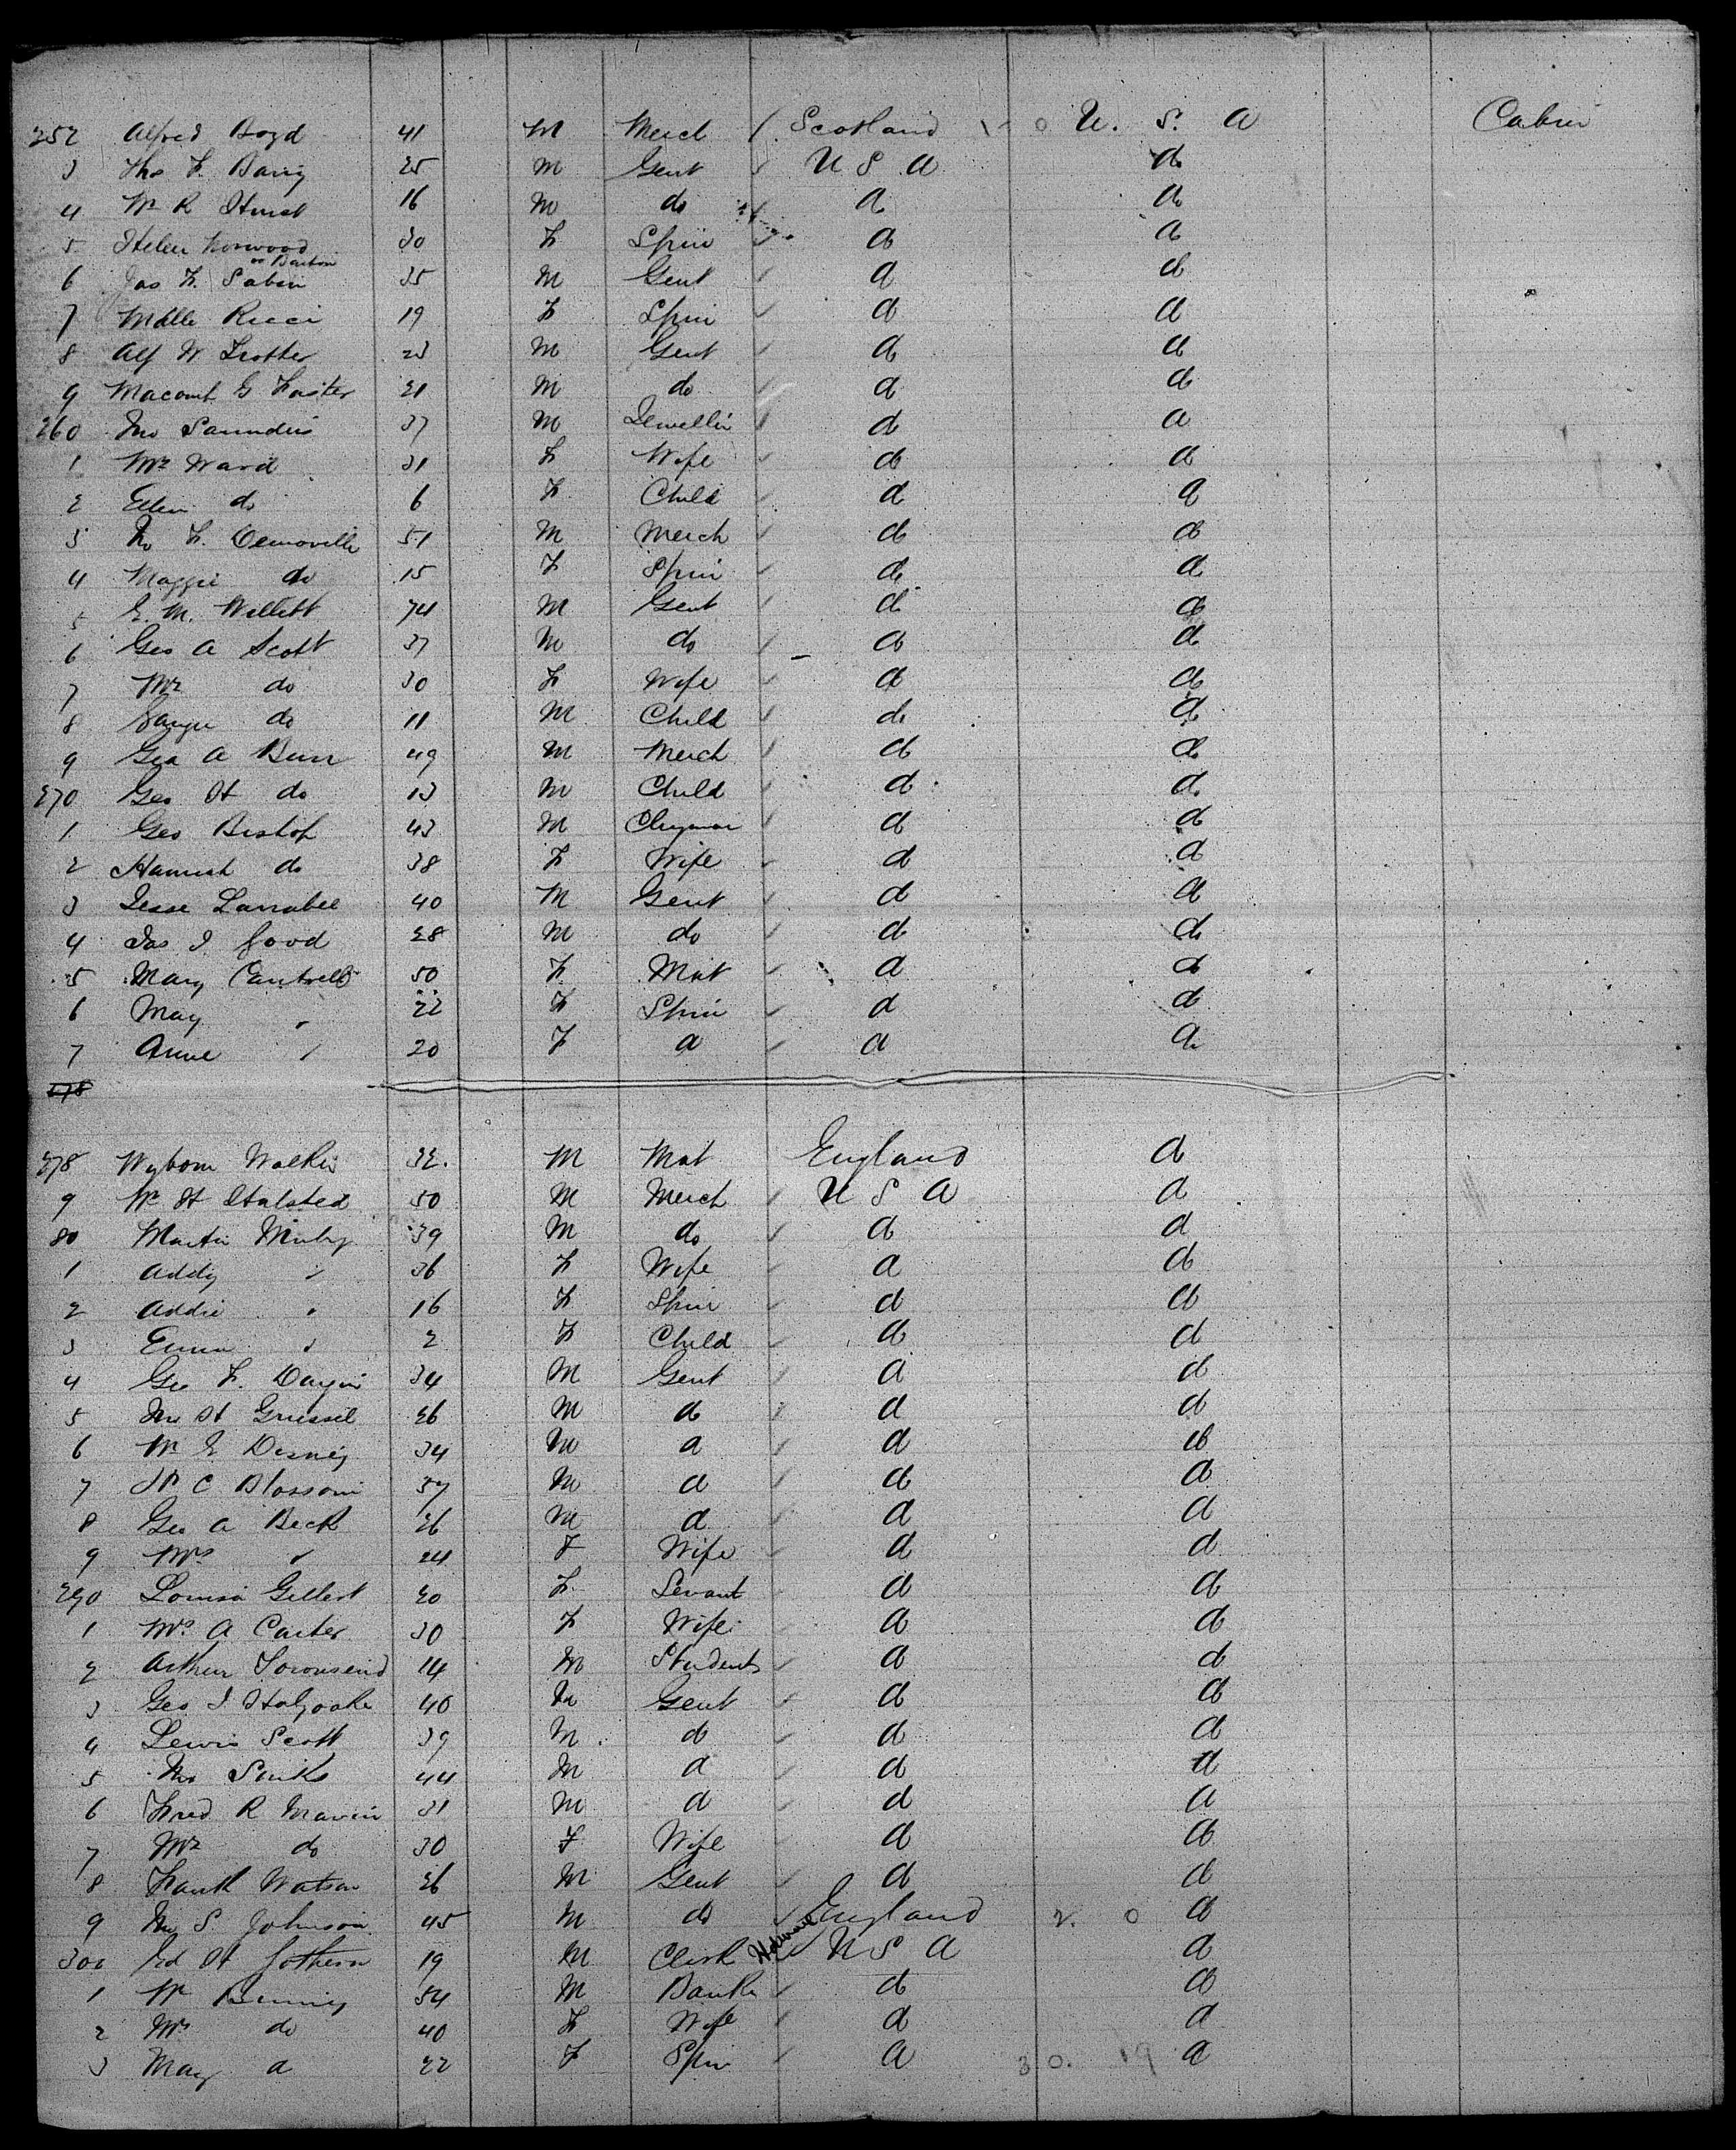 252 Alfred Boyd 41 M Merch Scotland U. S. A Cabin
3 Tho F. Barig 25 M Gent U S A do
4 Wm R Hurst 16 M do do do
5 Helen Norwood 30 F Spin do do
or Barton
6 Jas F. Sabin 35 M Gent do do
7 Mdlle Ricci 19 F Spin do do
8 Alf W Trotter 23 M Gent do do
9 Macomb G Foster 21 M do do do
260 Jno Saunders 37 M Jeweller do do
1 Mrs Ward 31 F Wife do do
2 Ellen do 6 F Child do do
3 Jno F. Demoville 51 M Merch do do
4 Maggie do 15 F Spin do do
5 E. M. Willett 74 M Gent do do
6 Geo A Scott 37 M do do do
7 Mrs do 30 F Wife do do
8 do 11 M Child do do
9 Geo A Burr 49 M Merch do do
270 Geo H do 13 M Child do do
1 Geo Bishop 43 M Clergman do do
2 Hannah do 38 F Wife do do
3 Jesse Larrabee 40 M Gent do do
4 Jas I Good 28 M do do do
5 Mary Cantrell 50 F Mat do do
6 May " 22 F Spin do do
7 Anne " 20 F do do do
278
278 Wybom Walker 32 M Mat England do
9 Wm H Halsted 50 M Merch U S A do
80 Martin 39 M do do do
1 Addy " 36 F Wife do do
2 Addie " 16 F Spin do do
3 Emma " 2 F Child do do
4 Geo F. 34 M Gent do do
5 Jno H Griessel 26 M do do do
6 Wm E Disney 34 M do do do
7 C Blossom 57 M do do do
8 Geo A Beck 26 M do do do
9 Mrs " 24 F Wife do do
290 Louisa Gilbert 20 F Servant do do
1 Mrs A Carter 30 F Wife do do
2 Arthur Townsend 14 M Student do do
3 Geo J Holyoake 40 M Gent do do
4 Lewis Scott 39 M do do do
5 Jno 44 M do do do
6 Fred R Marvin 31 M do do do
7 Mrs do 30 F Wife do do
8 Frank Watson 26 M Gent do do
9 Jno S. Johnson 45 M do England 2. 0 do
300 Ed H Sothern 19 M Clerk U S A do
1 Wm 54 M Banker do do
2 Mrs do 40 F Wife do do
3 May do 22 F Spin do 30. 19 do